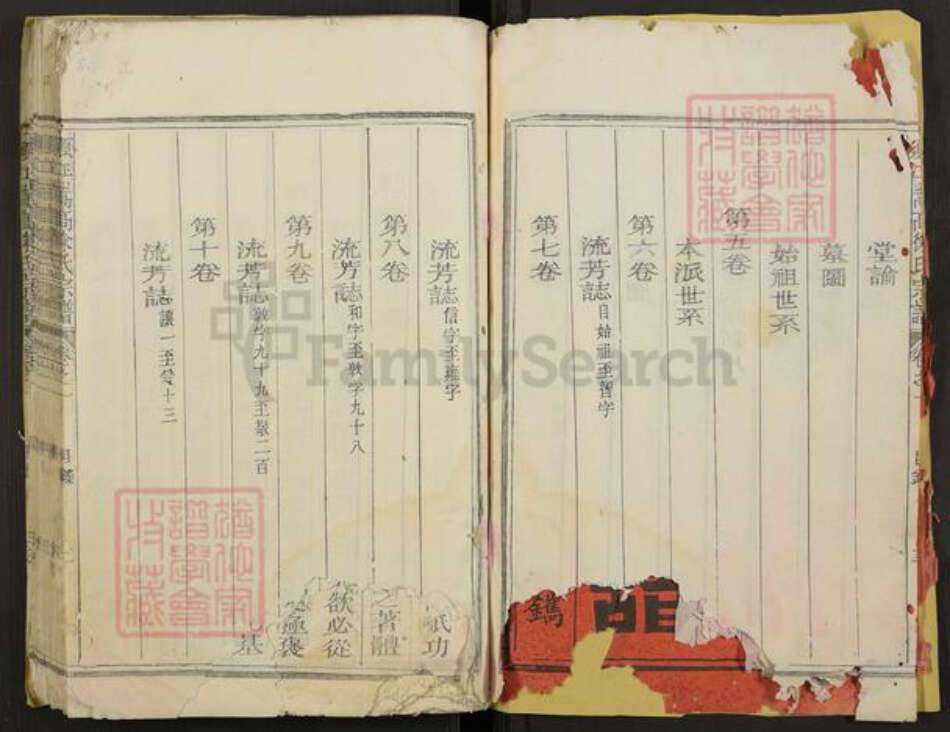 堂諭
墓圖
始祖世系
第五卷
本派世系
第六卷
流芳誌自始祖至智字
第七卷
鐫
流芳誌信字至雍字
第八卷
流芳誌和字至敦字九十八
第九卷
流芳誌敦字九十九至敬二百
第十卷
流芳誌讓一至愛十三
祇功
之著體
欲必從
極褒
基
氏宗譜
目錄
FamilySearch